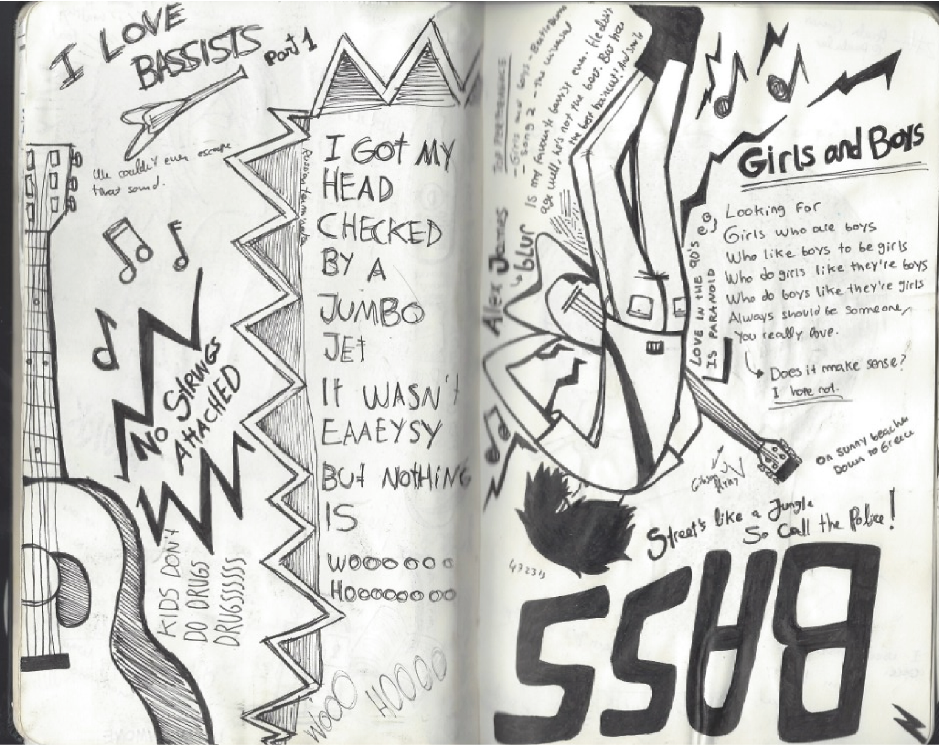 I LOVE
BASSISTS
Part 1
We couldn't even escape
that sound.
NO STRINGS
ATTACHED
KIDS DON'T
DO DRUGS
DRUGSSSSSS
I GOT MY
HEAD
CHECKED
BY A
JUMBO
JET
IT WASN'T
EAAEYSY
BUT NOTHING
IS
WOOOOOOO
HOOOOOOOO
WOOO HOOOO
TOP PERFORMANCES
- Girls and boys -
- song 2 -
Is my favourite bassist ever. He didn't
age well, it's not the boot. But has
the best haircut! And smile
Alex James
blur
Girls and Boys
Looking for
Girls who are boys
Who like boys to be girls
Who do girls like they're boys
Who do boys like they're girls
Always should be someone,
You really love.
Does it make sense?
I hope not.
LOVE IN THE 90's
IS PARANOID
On sunny beaches
Down to Greece
Street's like a Jungle
So Call the Police!
BASS